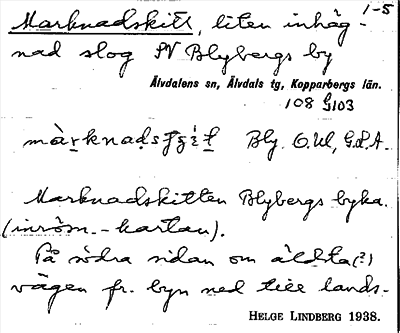 1-5
Marknadskitt, liten inhäg-
nad slog NV Blybergs by
Älvdalens sn, Älvdals tg, Kopparbergs län.
108 G103
Bly. O.Ul, G.L.A.
Marknadskitten Blybergs byka.
(inröm.-kartan).
På södra sidan om äldta(?)
vägen fr. byn ned till lands-
HELGE LINDBERG 1938.